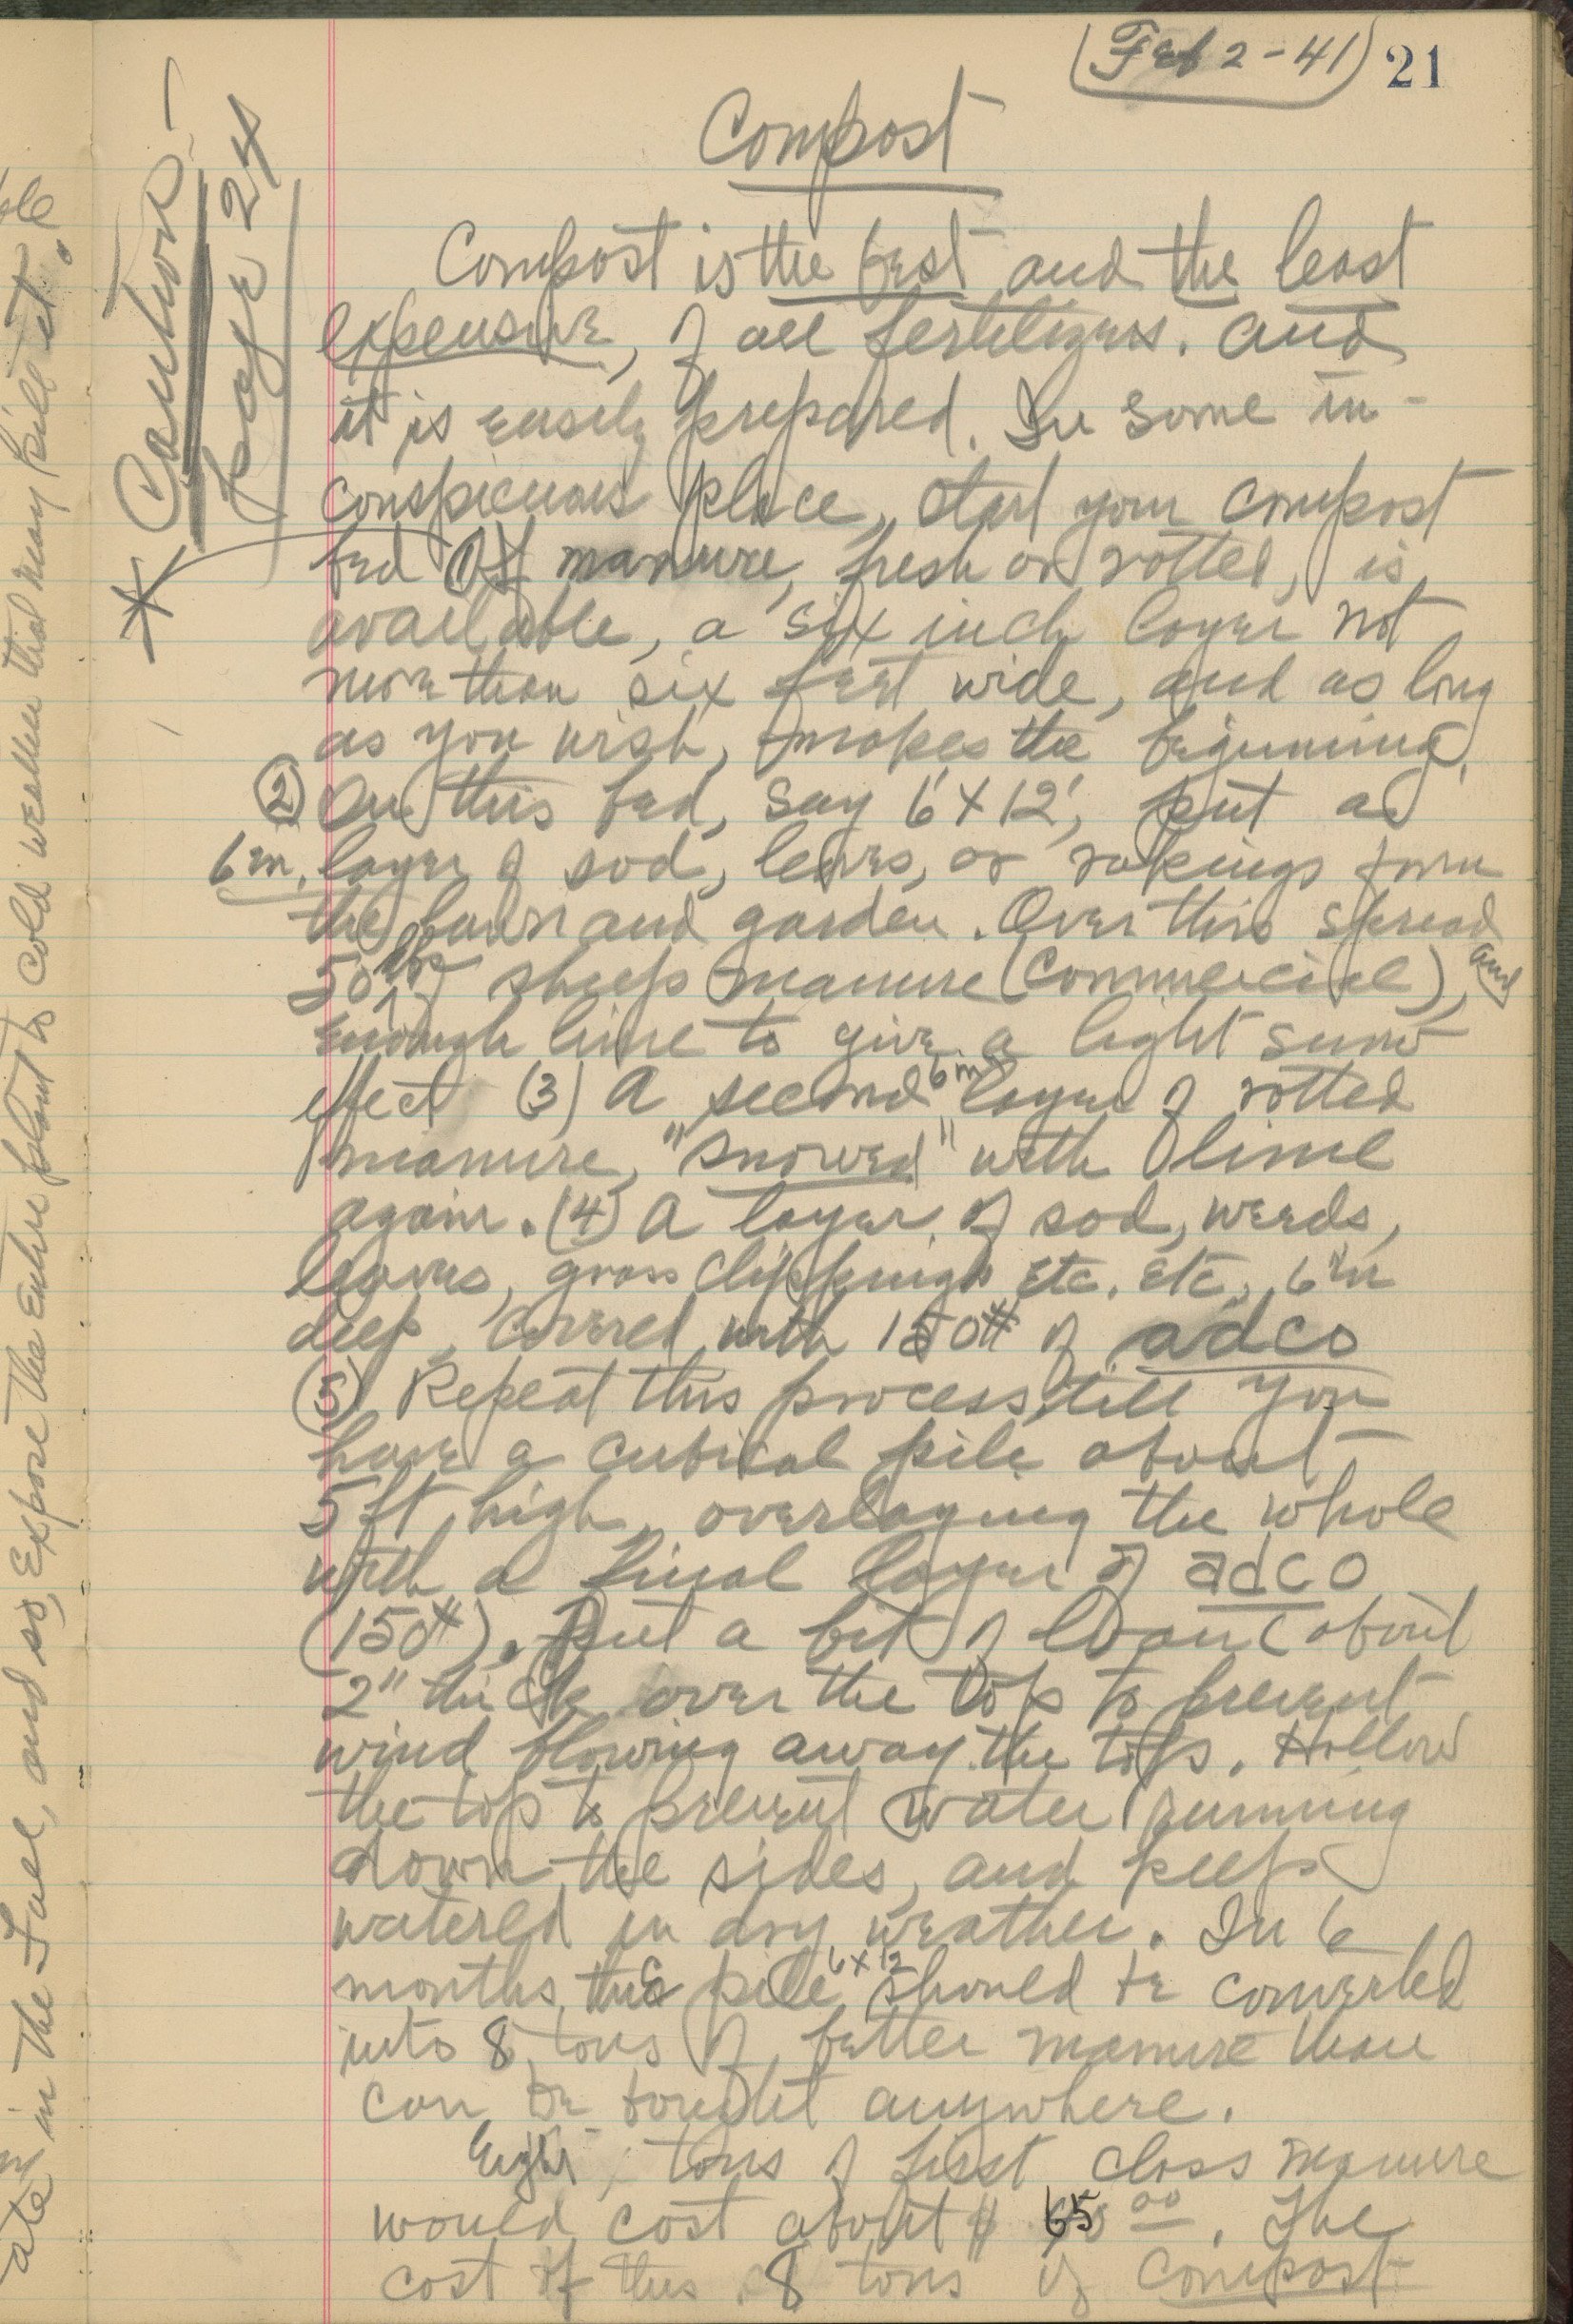 (Feb 2 - 41) 21
Compost
* Caution -
page 24
Compost is the best and the least
expensive, of all fertilizers. And
it is easily prepared. In some in-
conspicuous place, start your compost
bed (1) If manure, fresh or rotted, is
available, a six inch layer not
more than six feet wide, and as long
as you wish, makes the beginning.
(2) On this bed, say 6' x 12', put a
6 in. layer of sod, leaves, or rakings from
the lawn and garden. Over this spread
50 lbs sheep manure (Commercial), and
enough lime to give a light snow
effect (3) A second 6 in layer of rotted
manure, "snowed" with lime
again. (4) A layer of sod, weeds,
leaves, grass clippings etc. etc., 6 in
deep, covered with 150# of adco
(5) Repeat this process, till you
have a cubical pile about
5 ft high, overlaying the whole
with a final layer of adco
(150#). Put a bit of loam (about
2" thick over the top to prevent
wind blowing away the tops. Hollow
the top to prevent water running
down the sides, and keep
watered in dry weather. In 6
months, the pile 6 x 12 should be converted
into 8 tons of better manure than
can be bought anywhere.
Eight tons of first class manure
would cost about $ 65 00. The
cost of this 8 tons of compost
and so, expose the entire plant to cold weather that may kill it.
in the Fall,